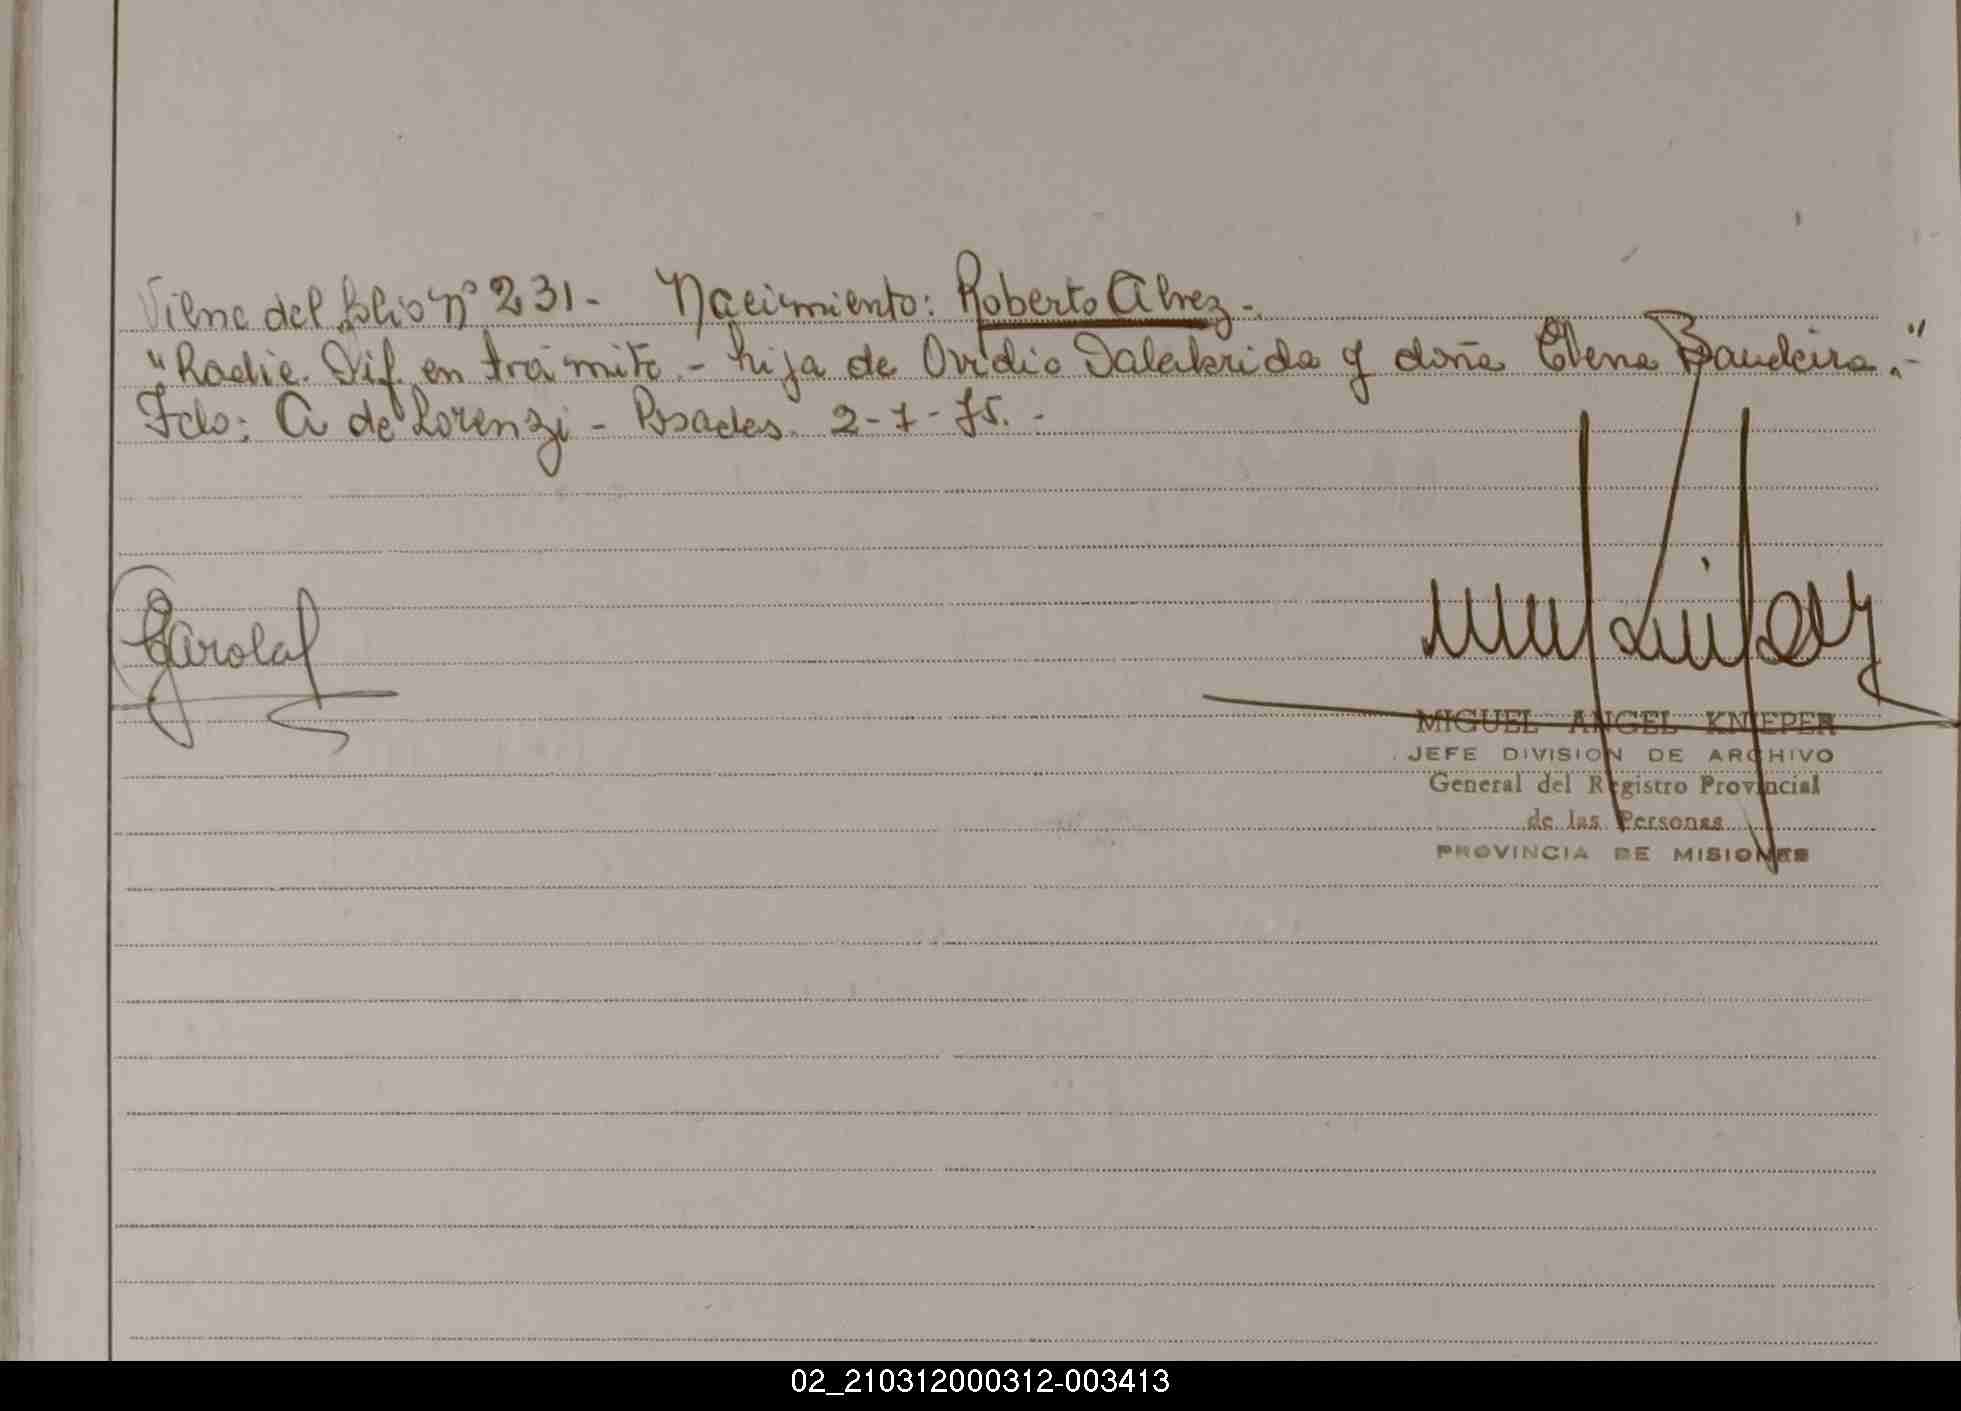 Viene del folio Nº 231 - Nacimiento: Roberto Alvez -.
"Radic. Dif. en trámite. - hija de Ovidio Dalabrida y doña Elena Bandeira. -"
Fdo: A de Lorenzi - Posadas. 2-7-75. -
MIGUEL ANGEL KNIEPER
JEFE DIVISION DE ARCHIVO
General del Registro Provincial
de las Personas
PROVINCIA DE MISIONES
02_210312000312-003413